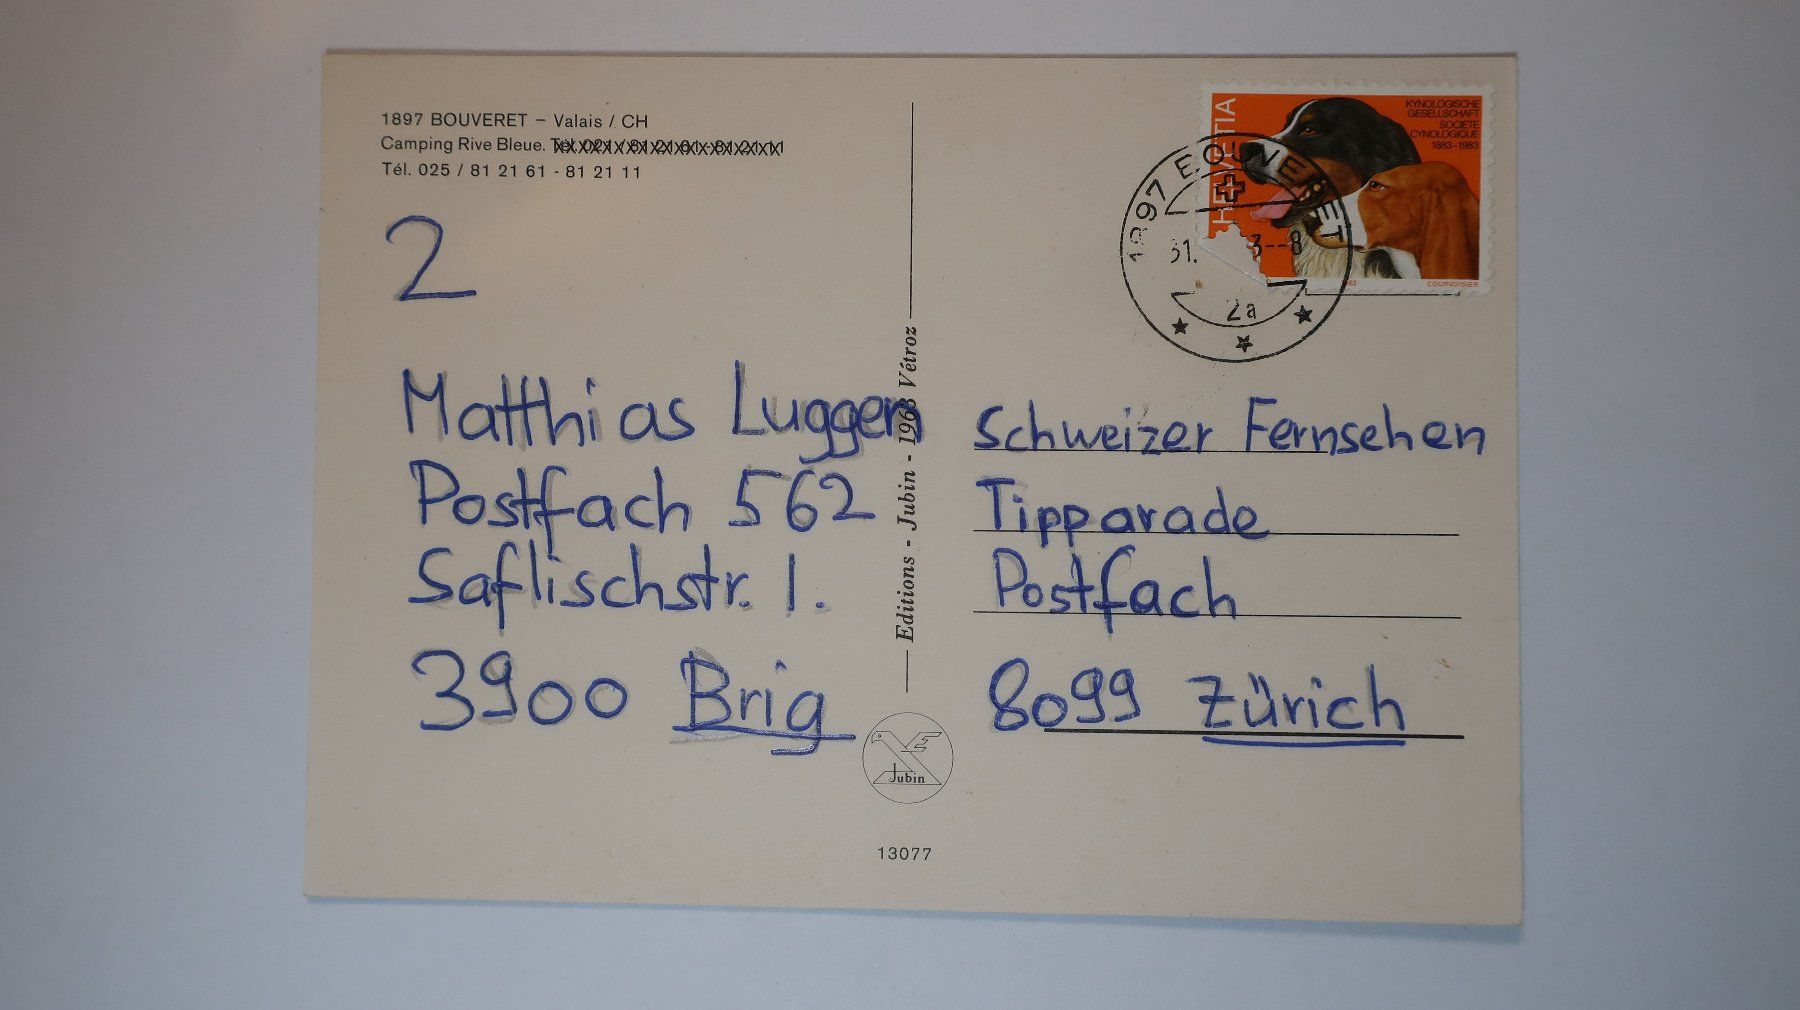 1897 BOUVERET – Valais / CH
Camping Rive Bleue. Tél. 021 / 81 21 61 - 81 21 11
Tél. 025 / 81 21 61 - 81 21 11
2
Matthias Luggen
Postfach 562
Saflischstr. 1.
3900 Brig
Editions - Jubin - 1963 Vétroz
Jubin
13077
HELVETIA
KYNOLOGISCHE
GESELLSCHAFT
SOCIETE
CYNOLOGIQUE
1883–1983
COURVOISIER
1897 BOUVERET
31. 3--8
2a
Schweizer Fernsehen
Tipparade
Postfach
8099 Zürich